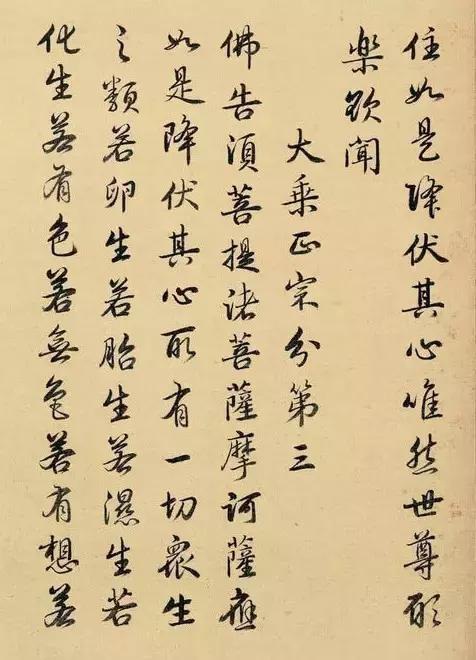 住如是降伏其心唯然世尊願
樂欲聞
大乘正宗分第三
佛告須菩提諸菩薩摩訶薩應
如是降伏其心所有一切眾生
之類若卵生若胎生若濕生若
化生若有色若無色若有想若